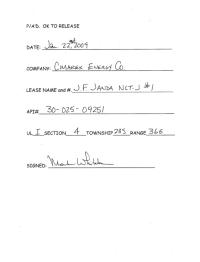 P/A'D. OK TO RELEASE
DATE: 22nd 2009
COMPANY: CIMAREX ENERGY CO
LEASE NAME and #. J.F JANDA NCT-J #1
API# 30-025-09251
UL I SECTION 4 TOWNSHIP RANGE 36E
SIGNED: